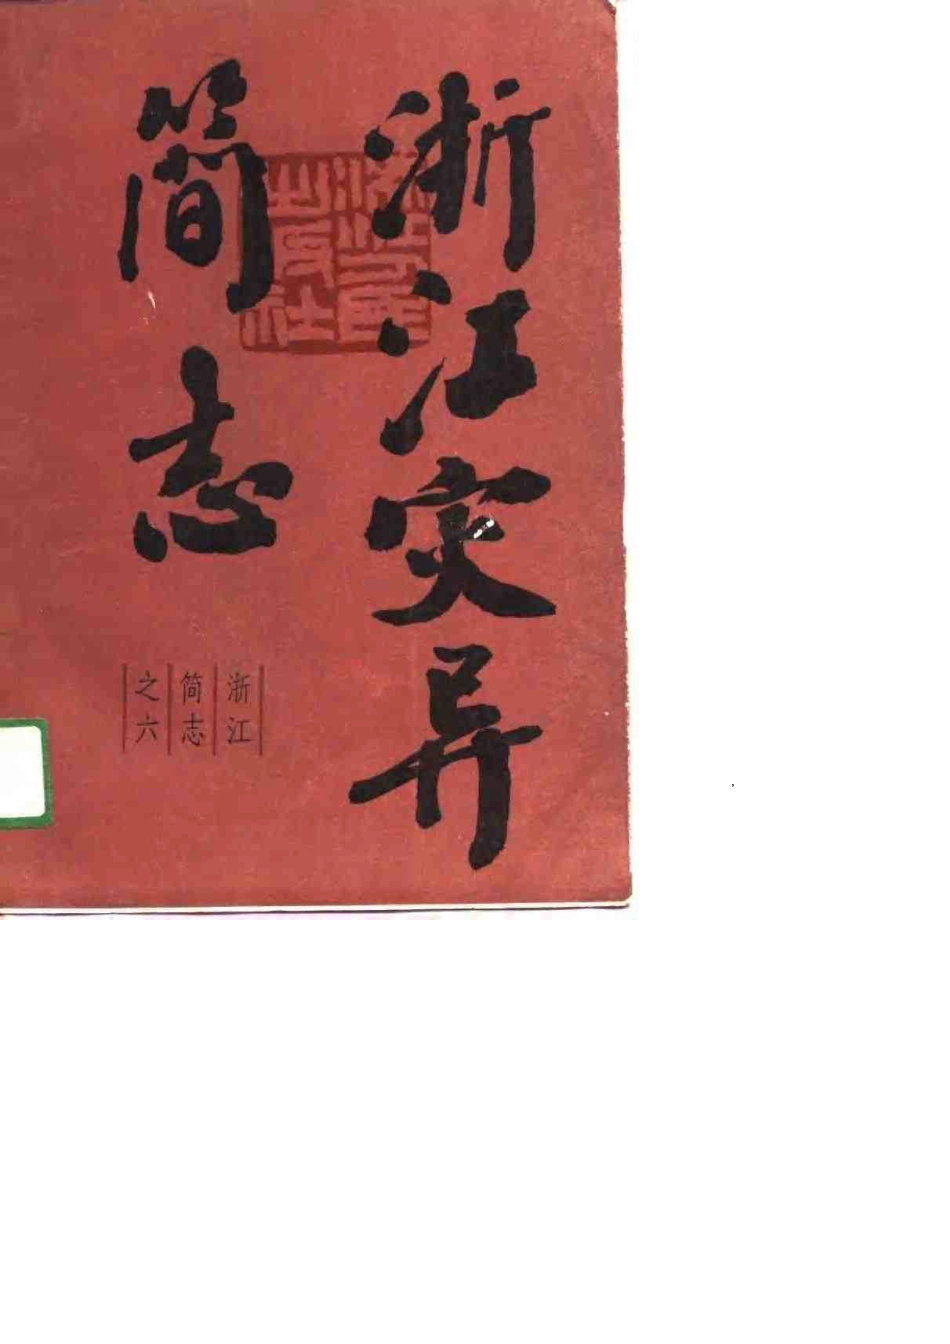 浙江灾异
简志
浙江人民
出版社
浙江
简志
之六